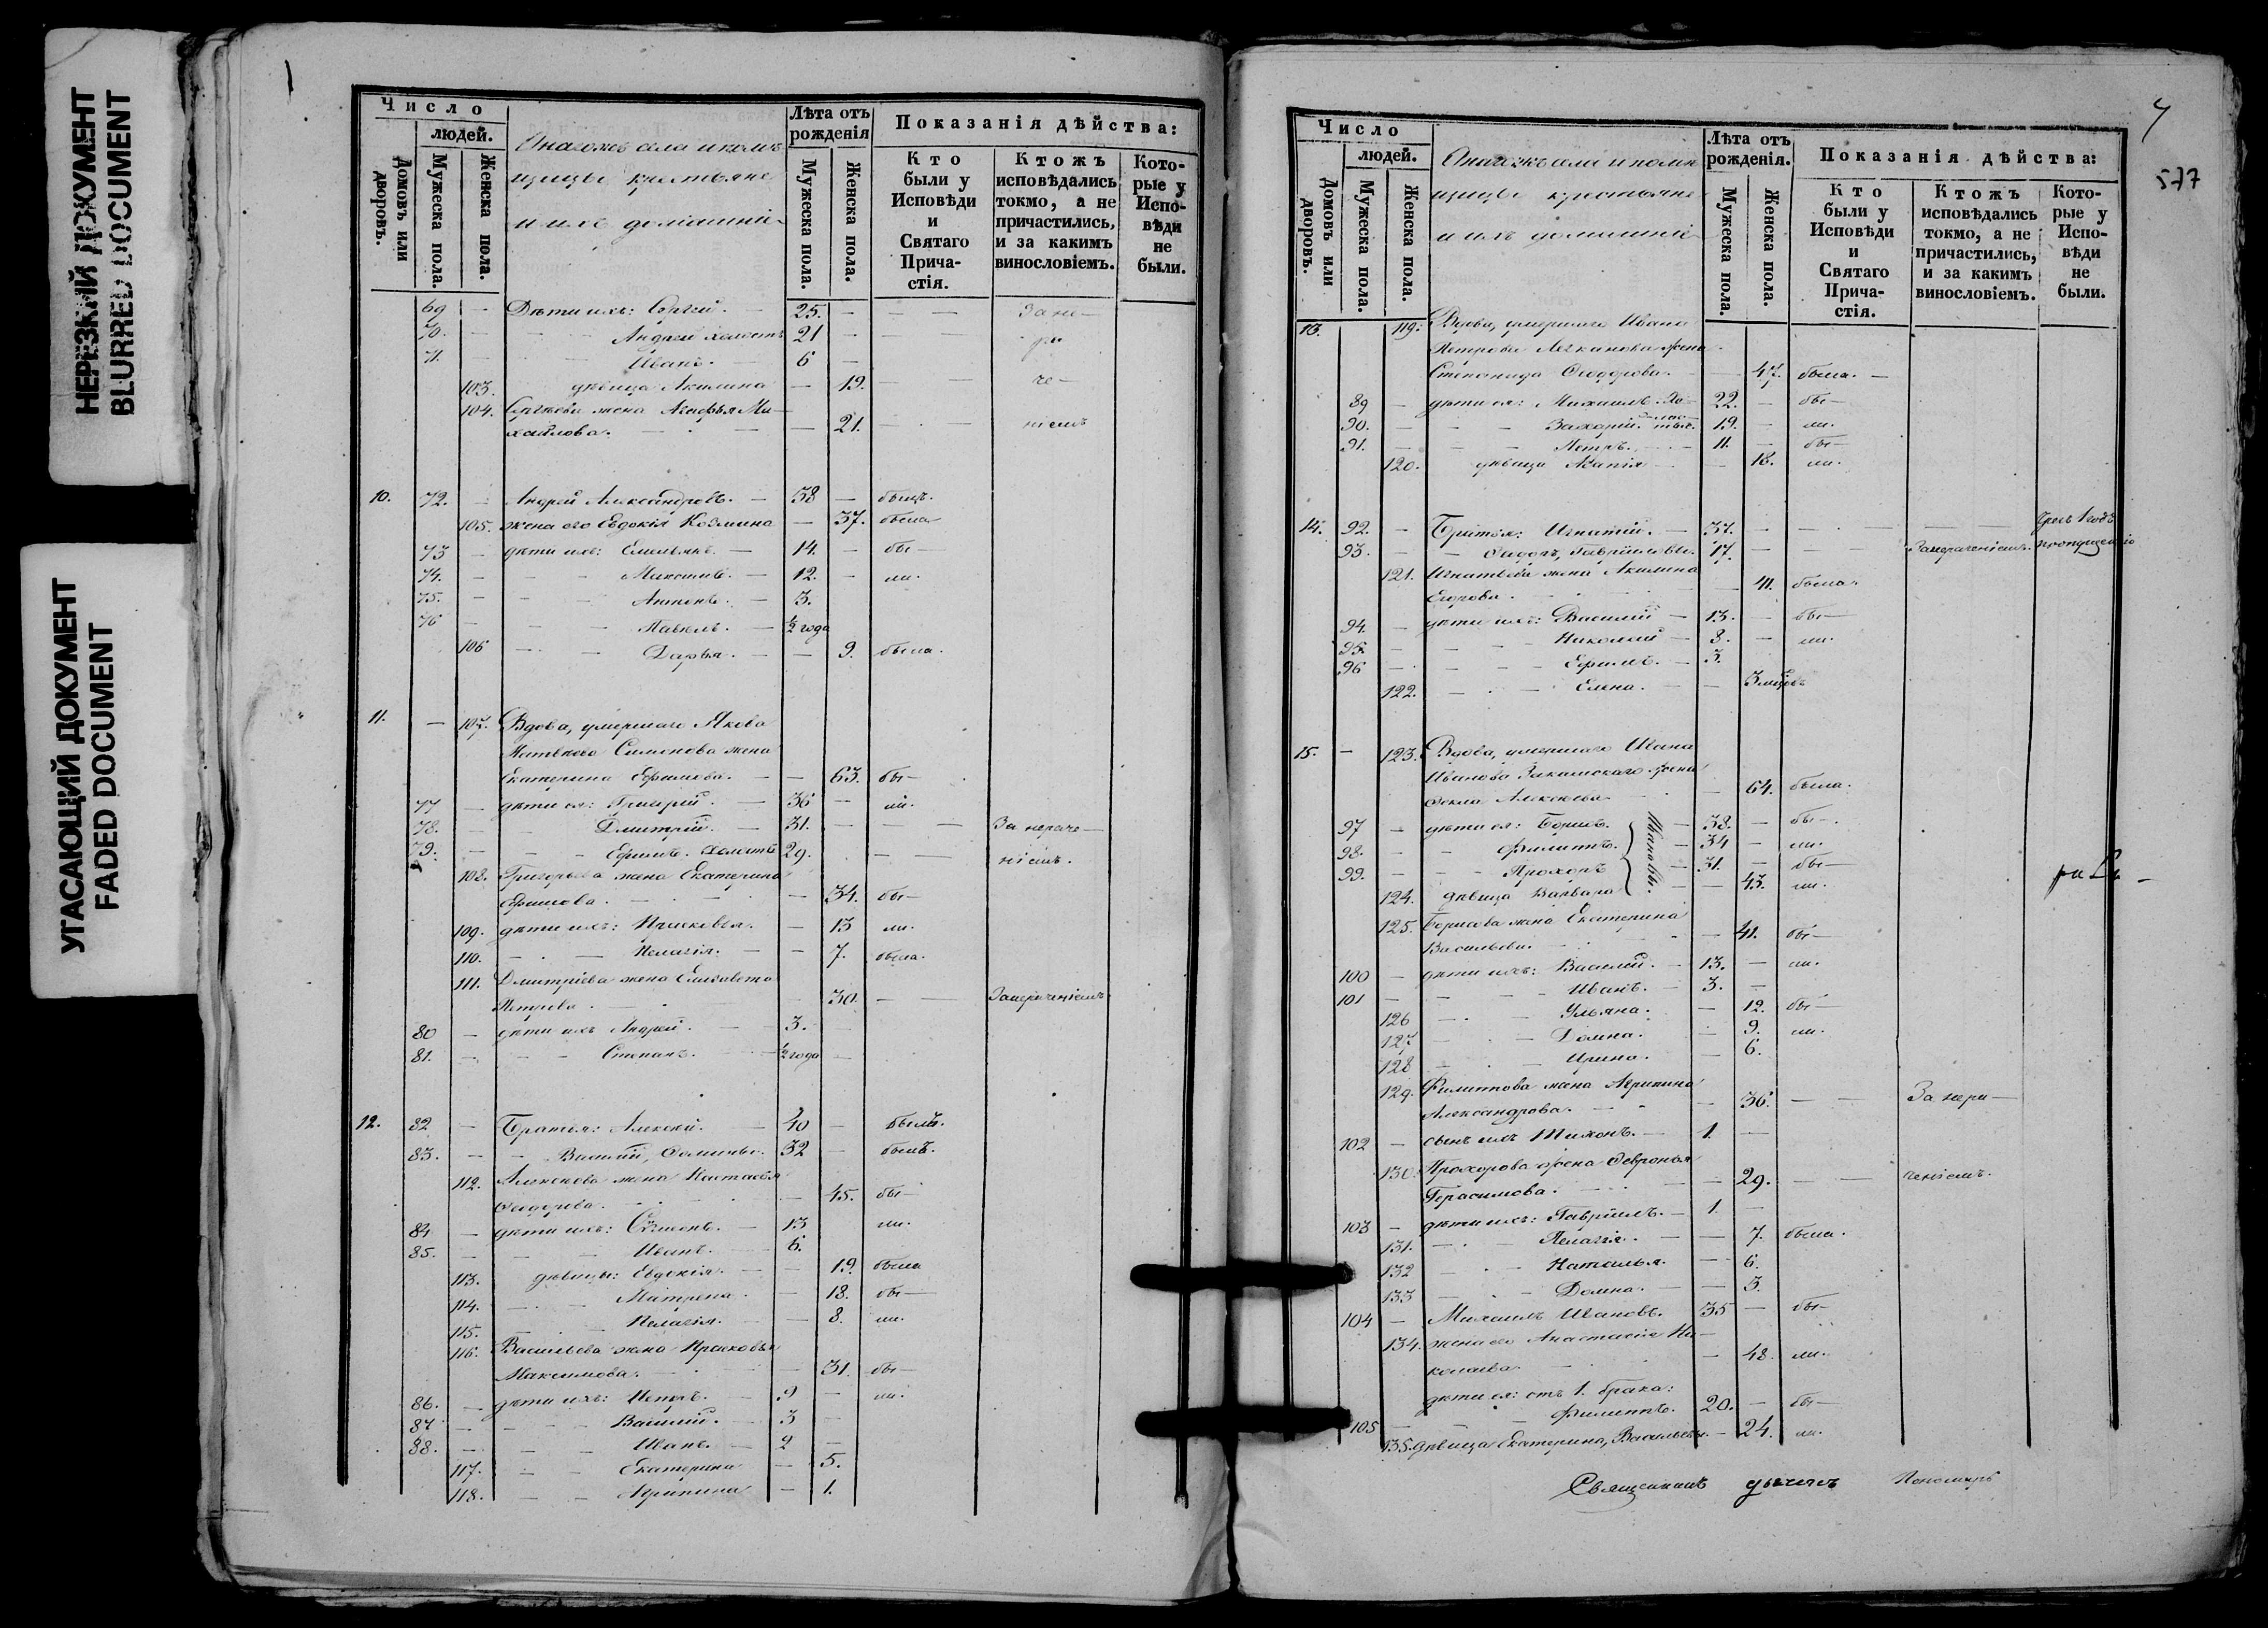 НЕРЕЗКИЙ ДОКУМЕНТ
BLURRED DOCUMENT
УГАСАЮЩИЙ ДОКУМЕНТ
FADED DOCUMENT
Число
людей.
Домовъ или дворовъ.
Мужеска пола.
Женска пола.
Онагожъ села и помѣ
щицы крестьяне
и ихъ домашніе
Лѣта отъ рожденія
Мужеска пола.
Женска пола.
Показанія дѣйства:
Кто были у Исповѣди и Святаго Прича-стія.
Ктожъ исповѣдались токмо, а не причастились, и за какимъ винословіемъ.
Кото-рые у Испо-вѣди не были.
69 — Дѣти ихъ: Сергѣй. — 25. — — — За не—
70. — — Андрей холостъ 21 — — ра
71. — — Иванъ. 6 —
103. дѣвица Акилина — 19. — — че—
104. Сергѣева жена Агафья Ми—
хайлова. — — — 21. — — ніемъ
10. 72. — Андрей Александровъ. — 38 — былъ.
105. жена его Евдокія Козмина — 37. была
73 — дѣти ихъ: Емельянъ. — 14. — бы—
74. — — — Максимъ. — 12. — ли.
75. — — — Антонъ. — 3.
76 — — — Павелъ. — ½ года
106 — — Дарья. — — 9. была.
11. — 107. Вдова, умершаго Якова
Матвѣева Симонова жена
Екатерина Ефимова. — — 63. бы—
77 — дѣти ея: Григорій. — 36 — ли.
78. — — Дмитрій. — 31. — — За нераче—
79. — — Ефимъ. холостъ 29. — — ніемъ.
108. Григорьева жена Екатерина
Ефимова. — — — 34. бы—
109. дѣти ихъ: Прасковья. — 13 ли.
110. — — Пелагія. — — 7. была.
111. Дмитріева жена Елисавета
Петрова — — 30. — Занераченіемъ
80 — дѣти ихъ Андрей. — 3.
81. — — — Степанъ. — ½ года —
12. 82 — Братья: Алексѣй. — 40 — былъ.
83. — — Василій, 32 — былъ.
112. Алексѣева жена Настасья
Сидорова. — — — 45. бы—
84 — дѣти ихъ: 13 ли.
85. — — — Иванъ. 6.
113. дѣвицы: Евдокія. — — 19. была
114. — — Матрена. — 18. бы—
115. — — Пелагія. — — 8. ли.
116. Васильева жена Прасковья
Максимова. — — 31. бы—
86. — дѣти ихъ: Петръ. — 9 — ли.
87 — — — Василій. — 3 —
88. — — — Иванъ. — 2 —
117. — — Екатерина — 5.
118. — — Агрипина — 1.
577
Число
людей.
Домовъ или дворовъ.
Мужеска пола.
Женска пола.
Онагожъ села и помѣ
щицы крестьяне
и ихъ домашніе
Лѣта отъ рожденія.
Мужеска пола.
Женска пола.
Показанія дѣйства:
Кто были у Исповѣди и Святаго Прича-стія.
Ктожъ исповѣдались токмо, а не причастились, и за какимъ винословіемъ.
Кото-рые у Испо-вѣди не были.
13. 119. Вдова, умершаго Ивана
Петрова жена
Степанида Ѳеодорова. — 47. была. —
89 — дѣти ея: Михаилъ. хо— 22. — бы—
90. — — — Захарій. 19. — ли.
91. — — — Петръ. — 11. — бы—
120. дѣвица Агапія — — 18. ли.
14. 92. — Братья: Игнатій. — 37. — — — чрезъ 1 годъ
93. — — Гавріиловы. 17. — — — Занераченіемъ.
121. Игнатьева жена Акилина
Егорова. — — 41. была.
94. — дѣти ихъ: Василій — 13. — бы—
95. — — — Николай — 8. — ли.
96 — — — Ефимъ. — 3.
122. — — Елена. — — 3 мѣсяц
15. — 123. Вдова, умершаго Ивана
Иванова жена
Ѳекла Алексѣева — — 64. была.
97 — дѣти ея: Борисъ. — 38. — бы—.
98. — — Филиппъ. — 34 — ли.
99. — — — Прохоръ — 31. — бы—
Ивановы.
124. дѣвица Варвара — — 43. ли.
125. Борисова жена Екатерина
Васильева. — — 41. бы—
100 — дѣти ихъ: Василій. — 13. — ли.
101 — — — Иванъ. — 3. —
126 — — Ульяна. — 12. бы—
127 — — Домна. — 9. ли.
128 — — Ирина. — 6.
129. Филиппова жена Агрипина
Александрова. — — — 36. — — За нера—
102 — сынъ ихъ Тихонъ. — 1. —
130. Прохорова жена Ѳевронья
Герасимова. — — 29. — — ченіемъ.
103 — дѣти ихъ: Гавріилъ. — 1. —
131. — — Пелагія. — — 7. была.
132 — — Наталья. — 6.
133 — — Домна. — — 3.
104 — Михаилъ Ивановъ. 35 — бы—
134. жена его Анастасія Ни—
колаева — — 48. ли.
дѣти ея: отъ 1. брака:
105 — — Филиппъ. 20. — бы—
135. дѣвица Екатерина, Васильевы. — 24. ли.
Священникъ дьячекъ Пономарь